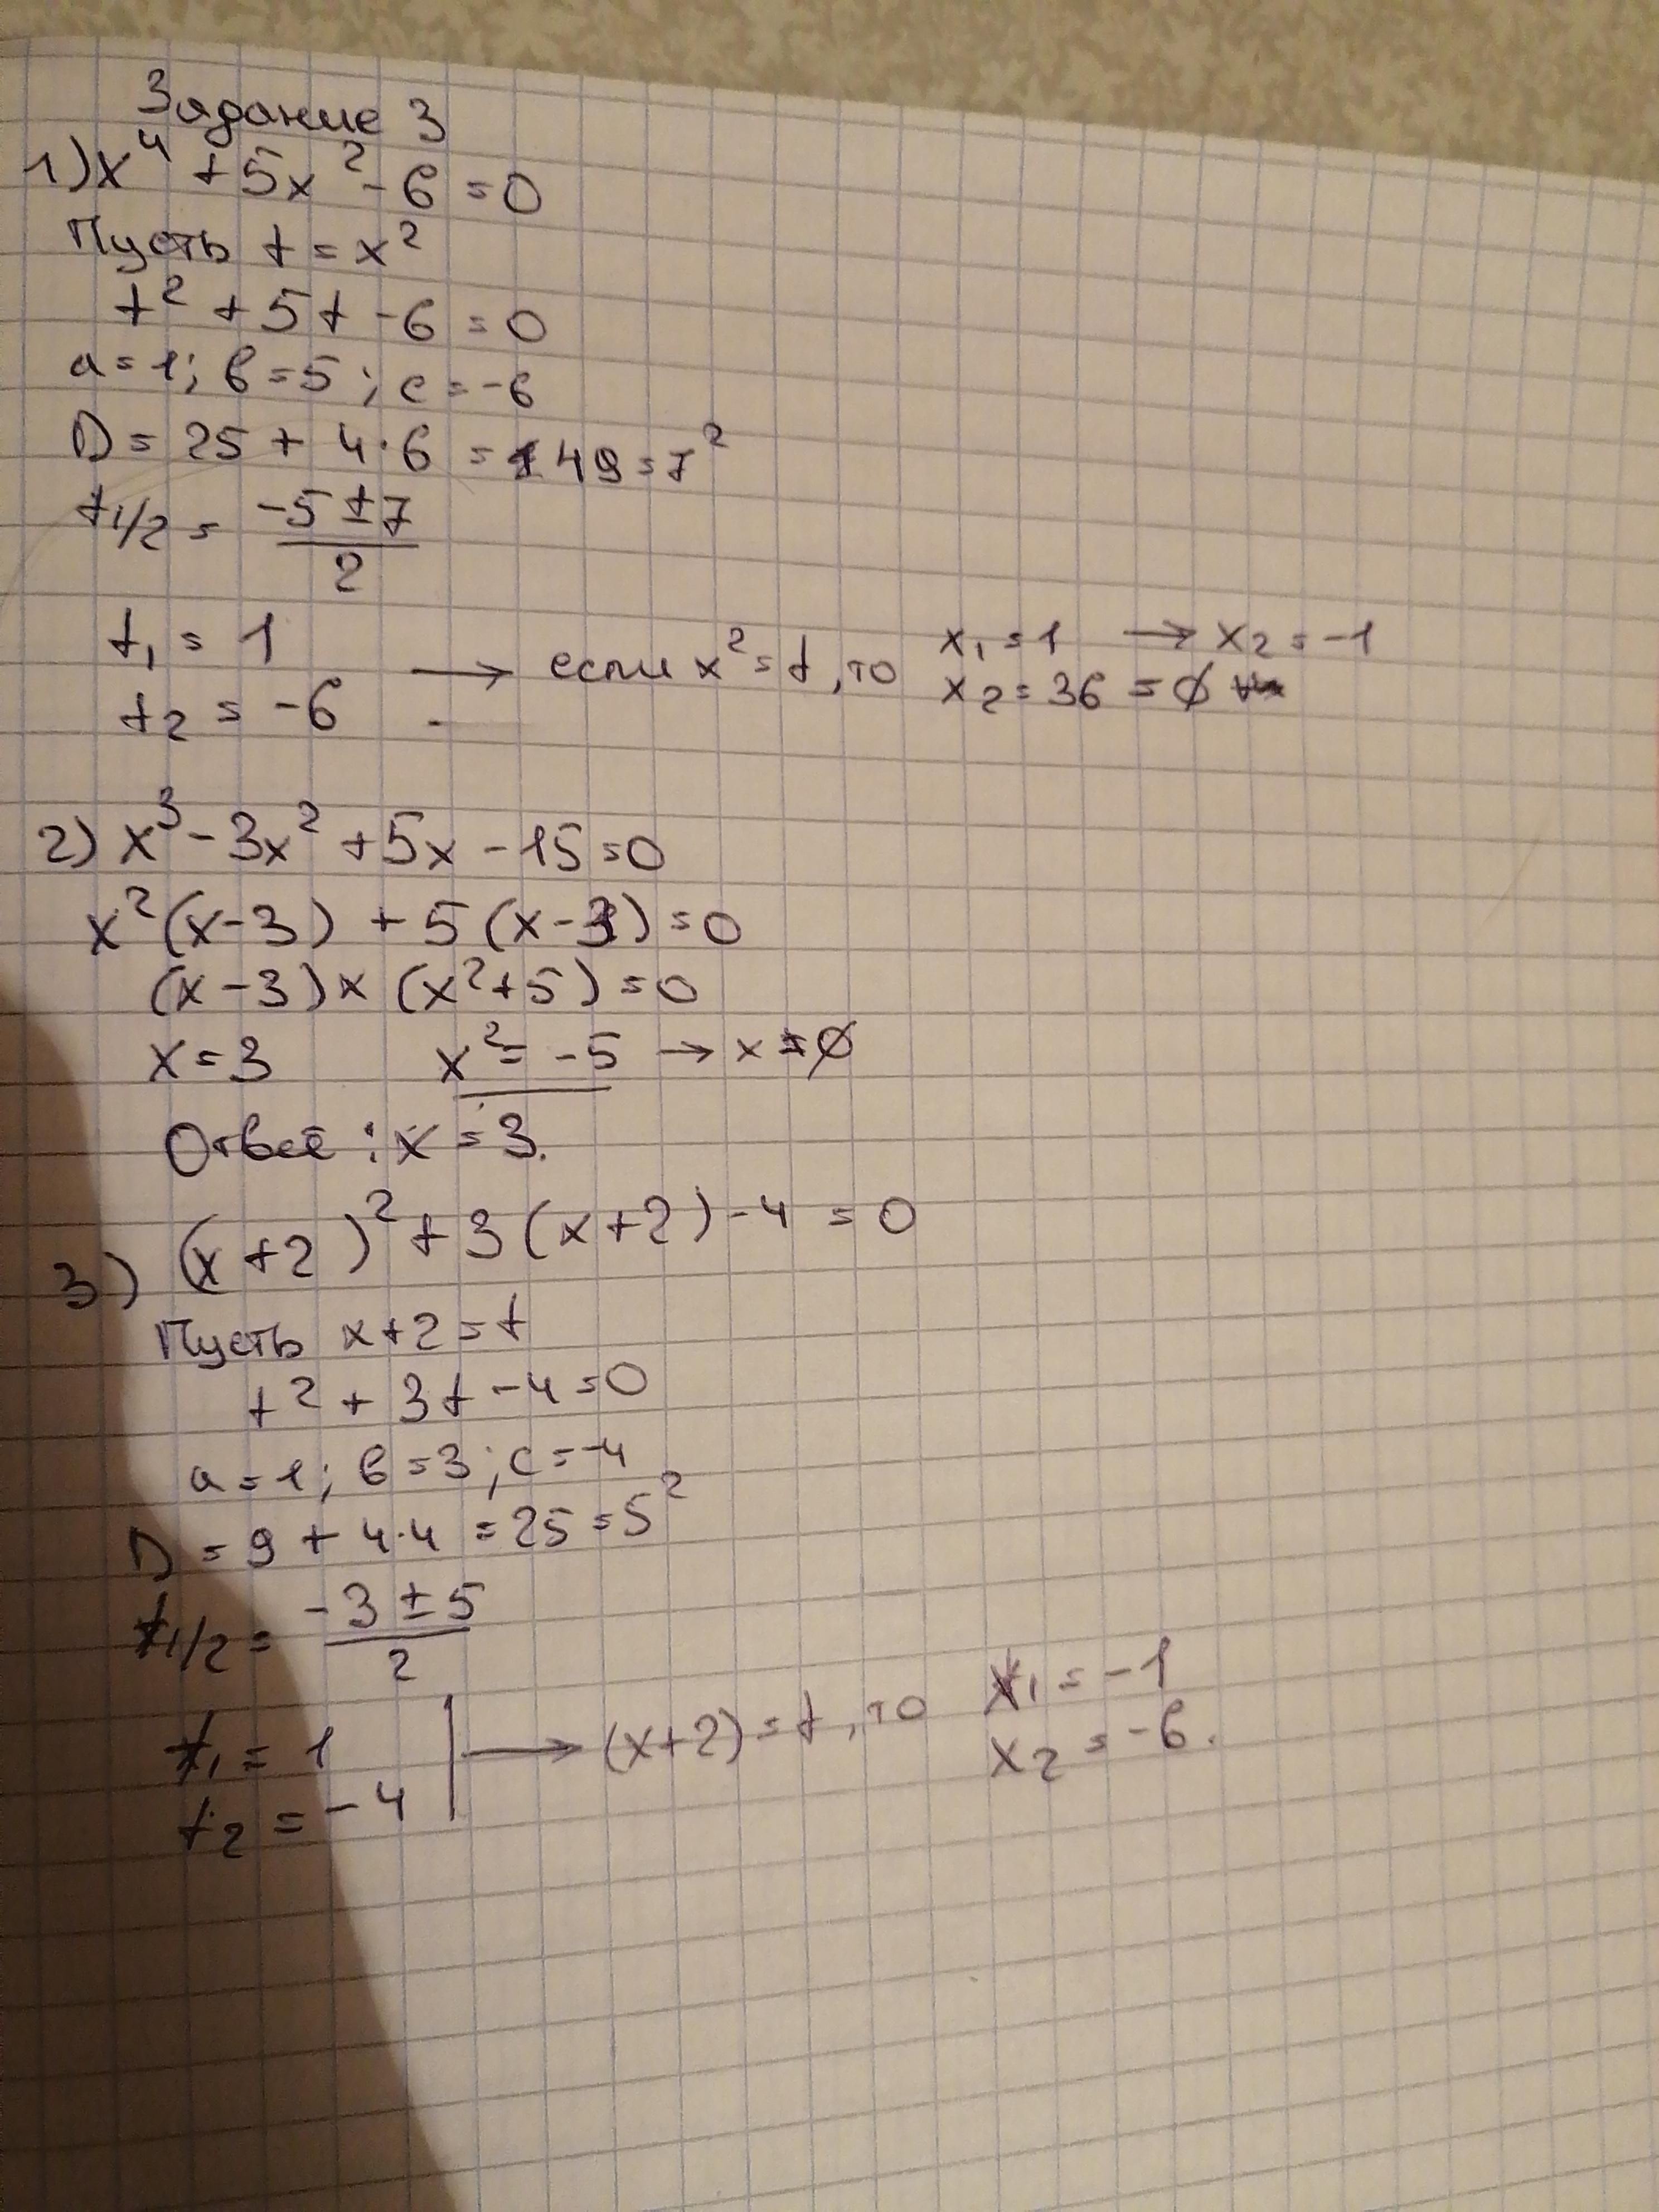 Задание 3
1) x⁴ + 5x² - 6 = 0
Пусть t = x²
t² + 5t - 6 = 0
a = 1; b = 5; c = -6
D = 25 + 4·6 = 49 = 7²
t1/2 = (-5 ± 7)/2
t₁ = 1
t₂ = -6
→ если x² = t, то
x₁ = 1 → x₂ = -1
x₂ = 36 = ∅
2) x³ - 3x² + 5x - 15 = 0
x²(x-3) + 5(x-3) = 0
(x-3) × (x²+5) = 0
x = 3 x² = -5 → x = ∅
Ответ: x = 3.
3) (x+2)² + 3(x+2) - 4 = 0
Пусть x+2 = t
t² + 3t - 4 = 0
a = 1; b = 3; c = -4
D = 9 + 4·4 = 25 = 5²
t1/2 = (-3 ± 5)/2
t₁ = 1
t₂ = -4
→ (x+2) = t, то
x₁ = -1
x₂ = -6.